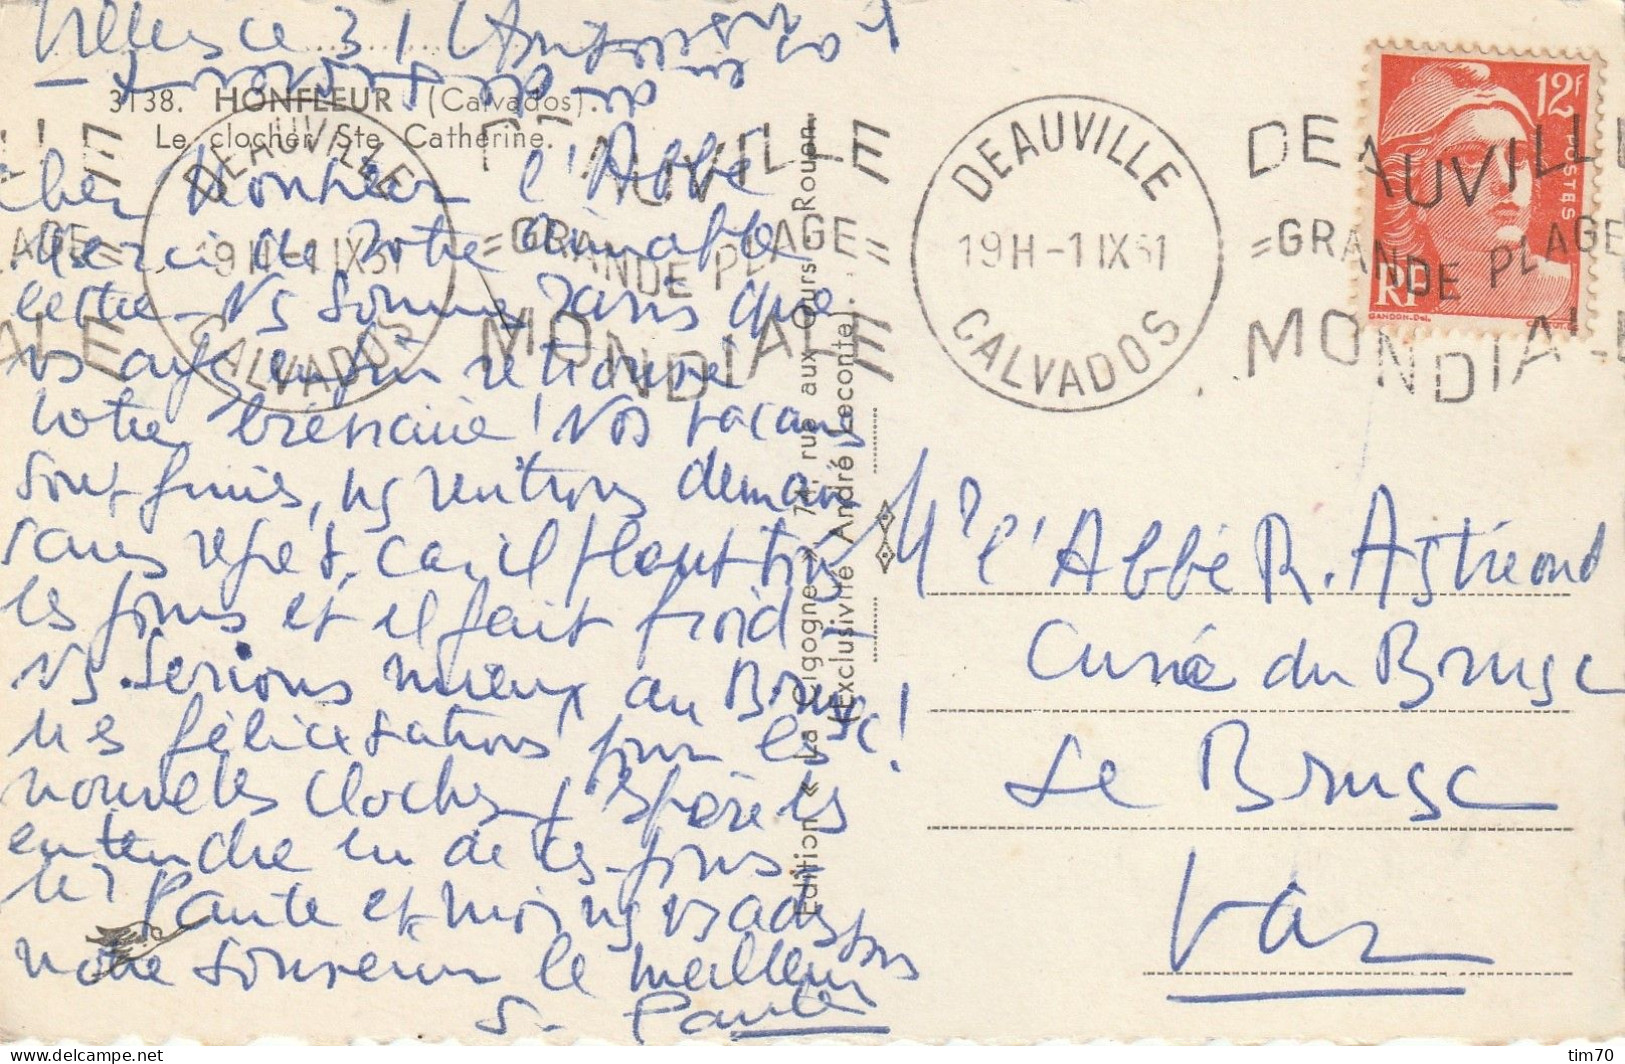 Villers ce 31 Août
3138. HONFLEUR (Calvados).
Le clocher Ste Catherine.
Cher Monsieur l'Abbé
Merci de votre aimable
lettre - Ns sommes ravis que
vs ayez enfin retrouvé
votre bréviaire ! Nos vacances
sont finies, ns rentrons demain
sans regret, car il pleut tous
les jours et il fait froid !
Vs serions mieux au Brusc !
mes félicitations pour les
nouvelles cloches, j'espère les
entendre un de ces jours
Paule et moi ns vs adressons
notre souvenir le meilleur
S. Paule
Edition « La Cigogne », 74, rue aux Ours - Rouen.
(Exclusivité André Leconte).
DEAUVILLE
19H-1 IX 51
CALVADOS
DEAUVILLE
=GRANDE PLAGE=
MONDIALE
DEAUVILLE
19H-1 IX 51
CALVADOS
DEAUVILLE
=GRANDE PLAGE
MONDIALE
12F
POSTES
RF
GANDON-Del.
Mr l'Abbé R. Astréoud
Curé du Brusc
Le Brusc
Var
tim70